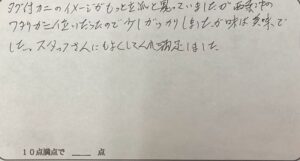 タグ付カニのイメージがもっと立派と思っていましたが
ワタリガニ位だったので少しがっかりしましたが味は美味で
した。スタッフさんにもよくしてくれ満足しました
10点満点で ___ 点